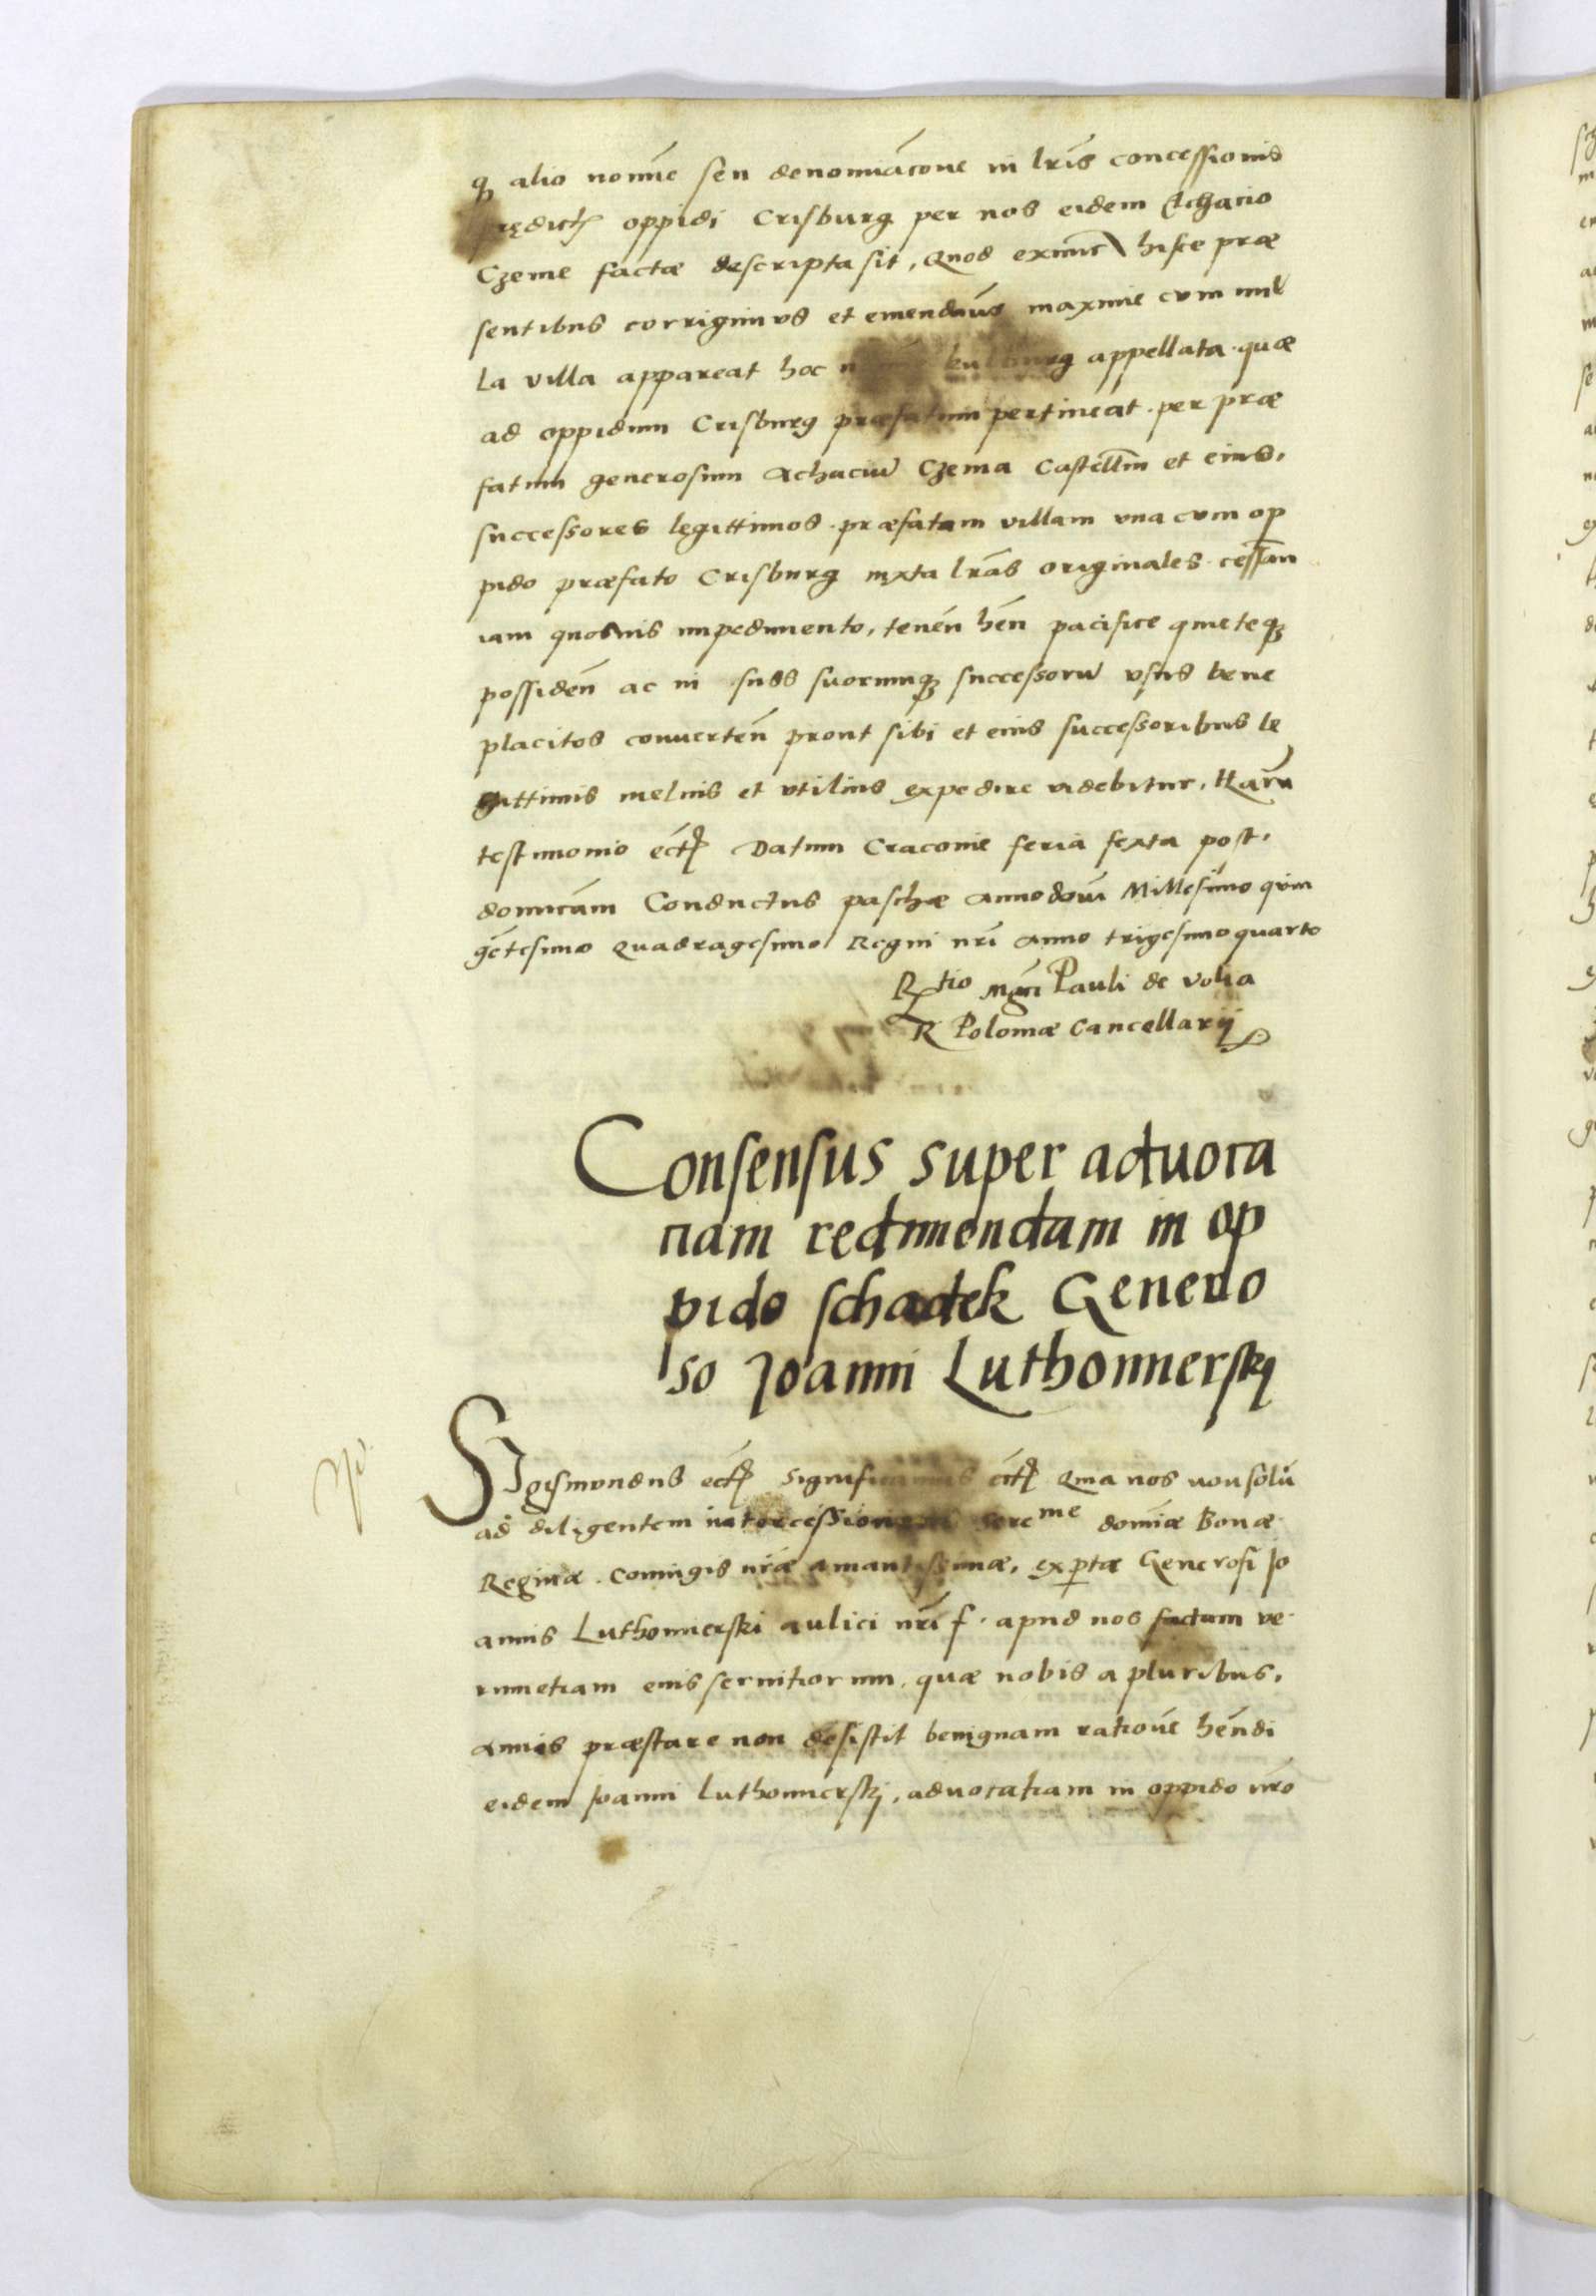 qȝ alio nomīe seu denominac̄one in lr̄is concessionis
p̄rędictȝ oppidi Crisburg per nos eidem Achacio
Czeme factæ descripta sit, Quod exnunc hisce præ
sentibus corrigimus et emendam̄us maxime cum nul
la villa appareat hoc appellata. quæ
ad oppidum Crisburg præfatum pertineat. per præ
fatum generosum Achaciū Czema Castellm̄ et eius,
successores legittimos. præfatam villam vna cum op
pido præfato Crisburg iuxta lrās originales. cessan̄
iam quouis impedimento, tenen̄ hēn pacifice quieteqȝ
possiden̄ ac in suos suorumqȝ successorū vsus bene
placitos conuerten̄ prout sibi et eius successoribus le
gittimis melius et vtilius expedire videbitur, Harū
testimonio ectȝ Datum Cracouie feria sexta post,
dominicām Conductus paschæ anno dom̄i Millesimo quin
gētesimo Quadragesimo Regni nrī anno trigesimo quarto
R̄tio Mgci Pauli de Volia
R Poloniæ Cancellarij
Consensus super aduoca
tiam redimendam in op
pido schadek Genero
so Joanni Luthomierskj
Sigismondus ectȝ Significamus ectȝ Quia nos non solū
ad diligentem intercessionem Sereme domīæ Bonæ
Reginæ. Coniugis nrāe amantissimæ, ex ptæ Generosi Jo
annis Luthomierski aulici nrī f. apud nos factam ve
rumetiam eius seruitiorum, quæ nobis a pluribus,
annis præstare non desistit benignam rationē hēndi
eidem Joanni Luthomierskj, aduocatiam in oppido nrō